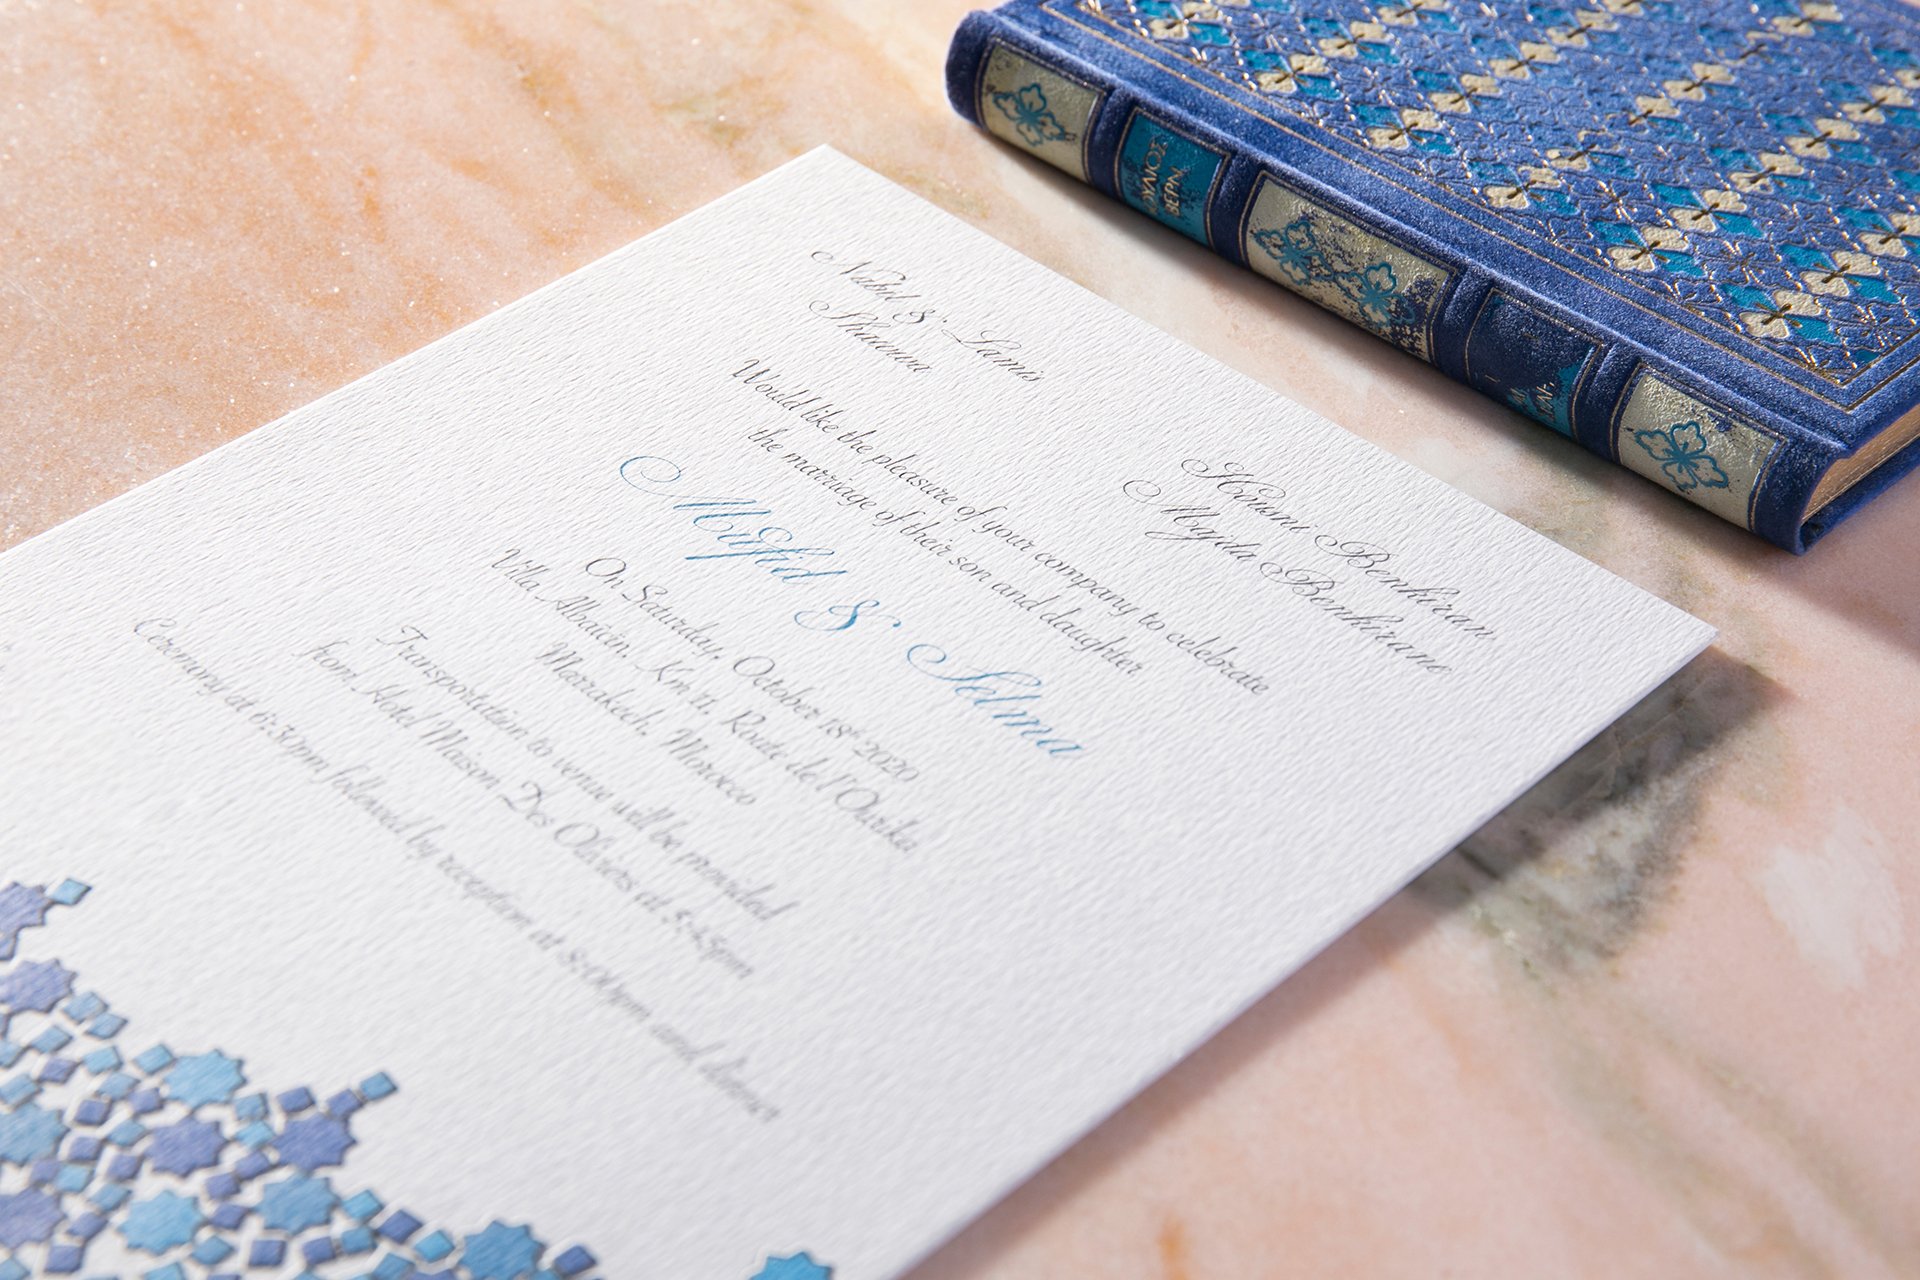 Nabil & Lamis
Shaawa
Housni Benkiran
Majda Benkirane
Would like the pleasure of your company to celebrate
the marriage of their son and daughter
Mufid & Selma
On Saturday, October 18th 2020
Villa Albaicin, Km 11, Route de l'Ourika
Marrakech, Morocco
Transportation to venue will be provided
from Hotel Maison Des Oliviers at 5:45pm
Ceremony at 6:30pm followed by reception at 8:00pm and dinner
ΙΟΥΛΙΟΣ
ΒΕΡΝ